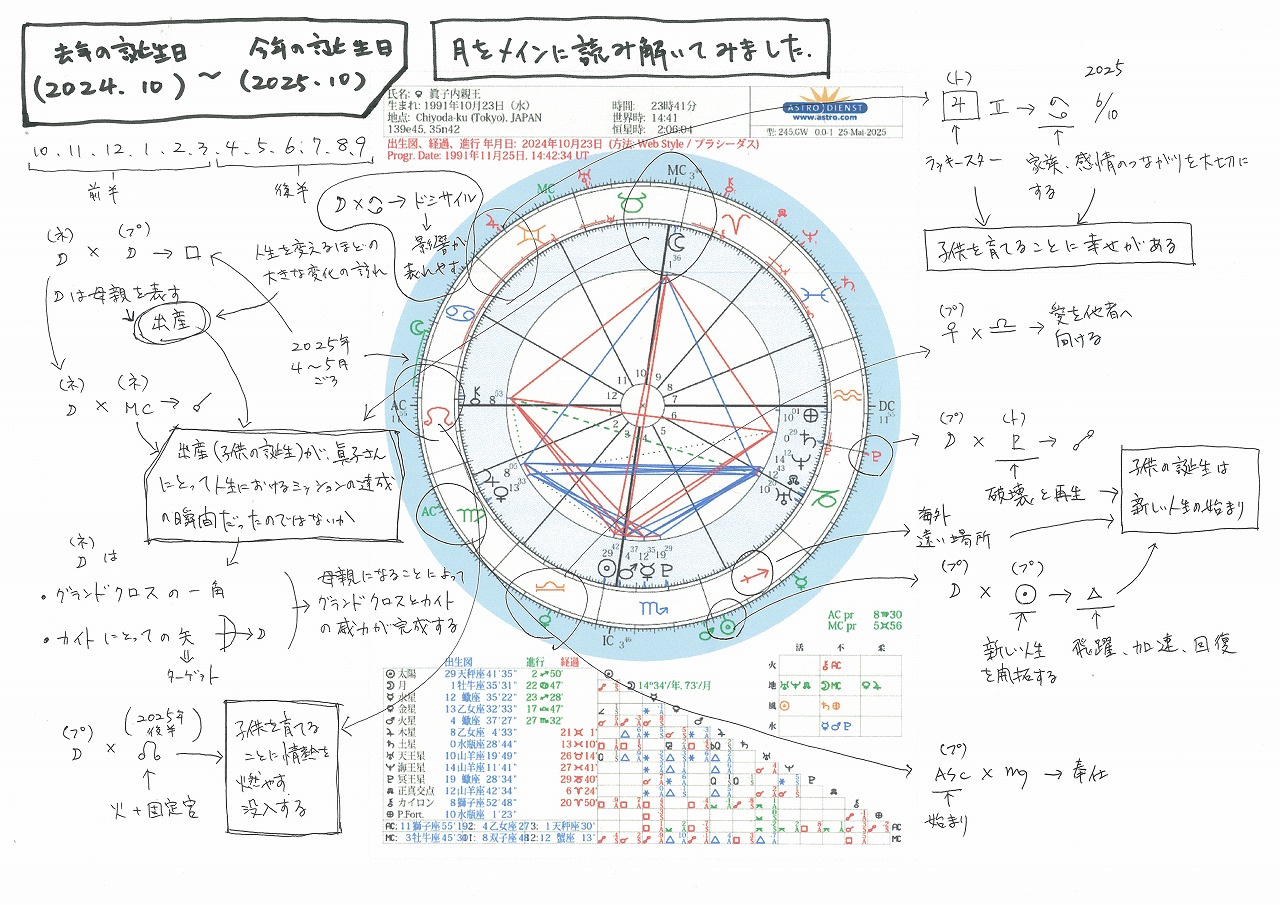 去年の誕生日 ～ 今年の誕生日
(2024.10) (2025.10)
月をメインに読み解いてみました.
氏名: ♀ 眞子内親王
生まれ: 1991年10月23日（水）
地点: Chiyoda-ku (Tokyo), JAPAN
139e45, 35n42
時間: 23時41分
世界時: 14:41
恒星時: 2:06:04
ASTRO DIENST
www.astro.com
型: 245.GW 0.0-1 25-Mai-2025
出生図、経過、進行 年月日: 2024年10月23日 (方法: Web Style / プラシーダス)
Progr. Date: 1991年11月25日, 14:42:34 UT
10、11、12、1、2、3、4、5、6、7、8、9
前半
後半
☽×♋→ドミサイル
影響が
表れやすい
(ネ) (プ)
☽ × ☽ → □
人生を変えるほどの
大きな変化の訪れ
☽は母親を表す
出産
2025年
4～5月
ごろ
(ネ) (ネ)
☽ × MC → ☌
出産(子供の誕生)が、眞子さん
にとって人生におけるミッションの達成
の瞬間だったのではないか
(ネ)
☽ は
・グランドクロスの一角
・カイトにとっての矢
→☽
ターゲット
母親になることによって
グランドクロスとカイト
の威力が完成する
(プ) (2025年後半)
☽ × ☊ →
火+固定宮
子供を育てる
ことに情熱を
燃やす
没入する
(ト)
♃ Ⅱ → ♋
2025
6/10
ラッキースター
家族、感情のつながりを大切に
する
子供を育てることに幸せがある
(プ)
♀ × ♎ → 愛を他者へ
向ける
(プ) (ト)
☽ × ♇ → ☍
破壊と再生
海外
遠い場所
子供の誕生は
新しい人生の始まり
(プ) (プ)
☽ × ☉ → △
新しい人生
を開拓する
飛躍、加速、回復
(プ)
ASC × ♍ → 奉仕
始まり
MC
AC
DC
IC
AC pr 8♍30
MC pr 5♉56
活 不 柔
火
地
風
水
出生図 進行 経過
☉太陽 29天秤座41'35" 2♐50'
☽月 1牡牛座35'31" 22♋47'
☿水星 12蠍座35'52" 23♐28'
♀金星 13乙女座32'33" 17♎47'
♂火星 4蠍座37'27" 27♏32'
♃木星 8乙女座 4'33" 21♊ 1'
♄土星 0水瓶座28'44" 13♓10'
天王星 10山羊座19'49" 26♉14'
海王星 14山羊座11'41" 27♓41'
冥王星 19蠍座28'34" 29♑40'
正真交点 12山羊座42'34" 6♈24'
カイロン 8獅子座52'48" 20♈50'
P.Fort. 10水瓶座 1'23"
AC: 11獅子座55'19 2: 4乙女座27 3: 1天秤座30'
12: 12蟹座 13'
☽14°34'/年, 73'/月